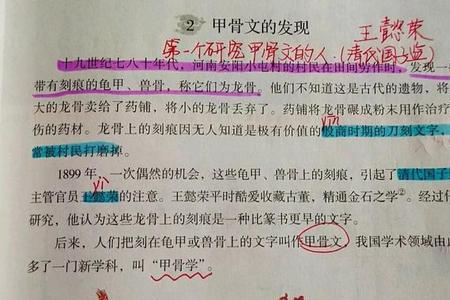 2 甲骨文的发现
王懿荣
第一个研究甲骨文的人（清代国子监）
十九世纪七八十年代，河南安阳小屯村的村民在田间劳作时，发现一
带有刻痕的龟甲、兽骨，称它们为龙骨。他们不知道这是古代的遗物，将
大的龙骨卖给了药铺，将小的龙骨丢弃了。药铺将龙骨碾成粉末用作治疗
伤的药材。龙骨上的刻痕因无人知道是极有价值的殷商时期的刀刻文字，
常被村民打磨掉。
1899年，一次偶然的机会，这些龟甲、兽骨上的刻痕，引起了清代国子
主管官员王懿荣的注意。王懿荣平时酷爱收藏古董，精通金石之学②。经过
研究，他认为这些龙骨上的刻痕是一种比篆书更早的文字。
后来，人们把刻在龟甲或兽骨上的文字叫作甲骨文，我国学术领域由
多了一门新学科，叫“甲骨学”。